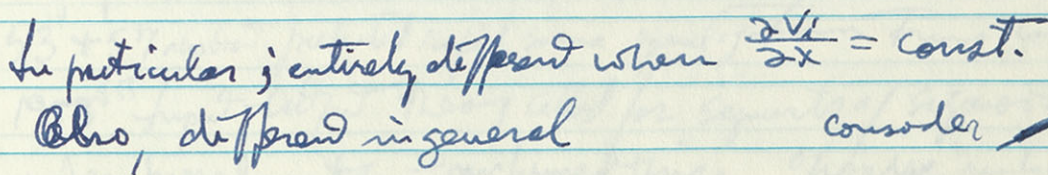 In particular ; entirely different when ∂Vi/∂x = const.
Also, different in general consider